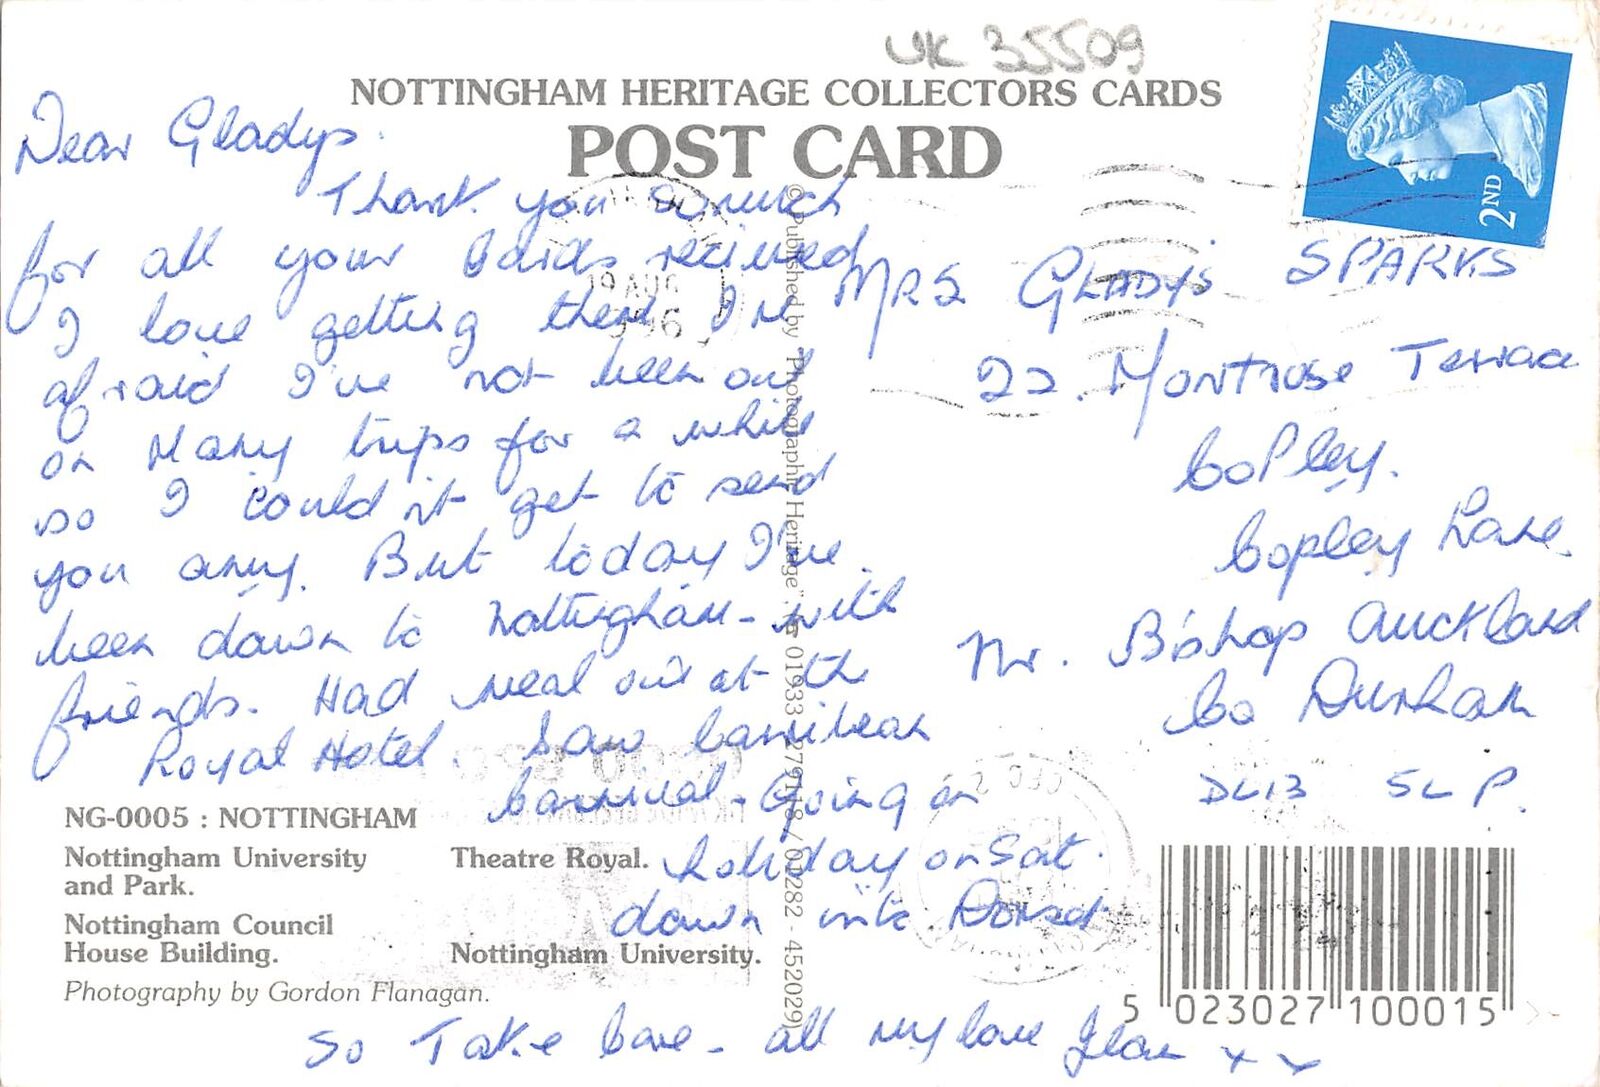 UK 35509
NOTTINGHAM HERITAGE COLLECTORS CARDS
POST CARD
2ND
19 AUG
1996
Dear Gladys.
Thank you so much
for all your cards received
I love getting them I'm
afraid I've not been out
on many trips for a while
so I could n't get to send
you any. But today I've
been down to Nottingham - with
friends. Had meal out at the
Royal Hotel. Saw Carribean
Carnival - Going on
holiday on Sat.
down into Dorset
So Take Care - all my love Jean x x
MRS GLADYS SPARKS
22. Montrose Terrace
Copley.
Copley Lane.
Nr. Bishop Auckland
Co Durham
DL13 5LP.
© Published by "Photographic Heritage" 01933 - 279118 / 01282 - 452029)
NG-0005 : NOTTINGHAM
Nottingham University
and Park.
Theatre Royal.
Nottingham Council
House Building.
Nottingham University.
Photography by Gordon Flanagan.
5 023027 100015